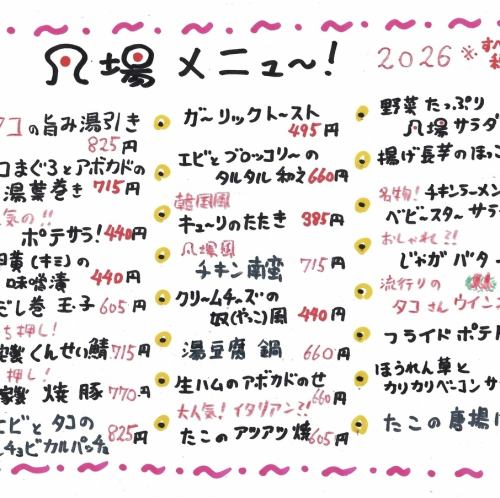 凡場 メニュ〜! 2026 ※
タコの旨み湯引き
825円
まぐろとアボカドの
湯葉巻き 715円
気の!!
ポテサラ! 440円
(キミ)の
味噌漬 440円
だし巻 玉子 605円
ち押し!
くんせい鯖 715円
押し!
家製 焼豚 770円
エビと タコの
チョビカルパッチョ 825円
ガーリックトースト
495円
エビとブロッコリーの
タルタル和え 660円
韓国風
キューリのたたき 385円
凡場風
チキン南蛮 715円
クリームチーズの
奴(やっこ)風 440円
湯豆腐 鍋 660円
生ハムのアボカドのせ
660円
大人気! イタリアン?!
たこのアツアツ焼 605円
野菜たっぷり
凡場サラダ
揚げ長芋のほっこ
名物! チキンラーメン
ベビースターサラ
おしゃれ?!
じゃがバター
流行りの
タコさんウインナ
フライドポテト
ほうれん草と
カリカリベーコンサ
たこの唐揚げ